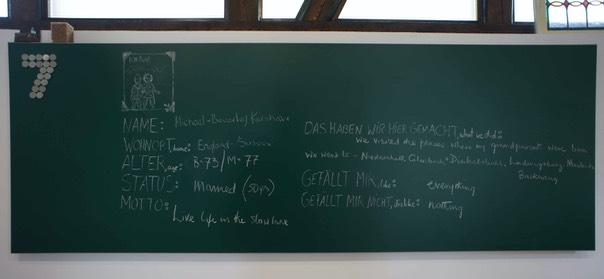 7
NAME: Michael + Beverley
WOHNORT, home: England - Sussex
ALTER, age: B-73/M-77
STATUS: Married (50yrs)
MOTTO: Live life in the slow lane
DAS HABEN WIR HIER GEMACHT, what we did:
We visited the places where my grandparents were born
We went to -
Backnang
GEFÄLLT MIR, like: everything
GEFÄLLT MIR NICHT, dislike: nothing